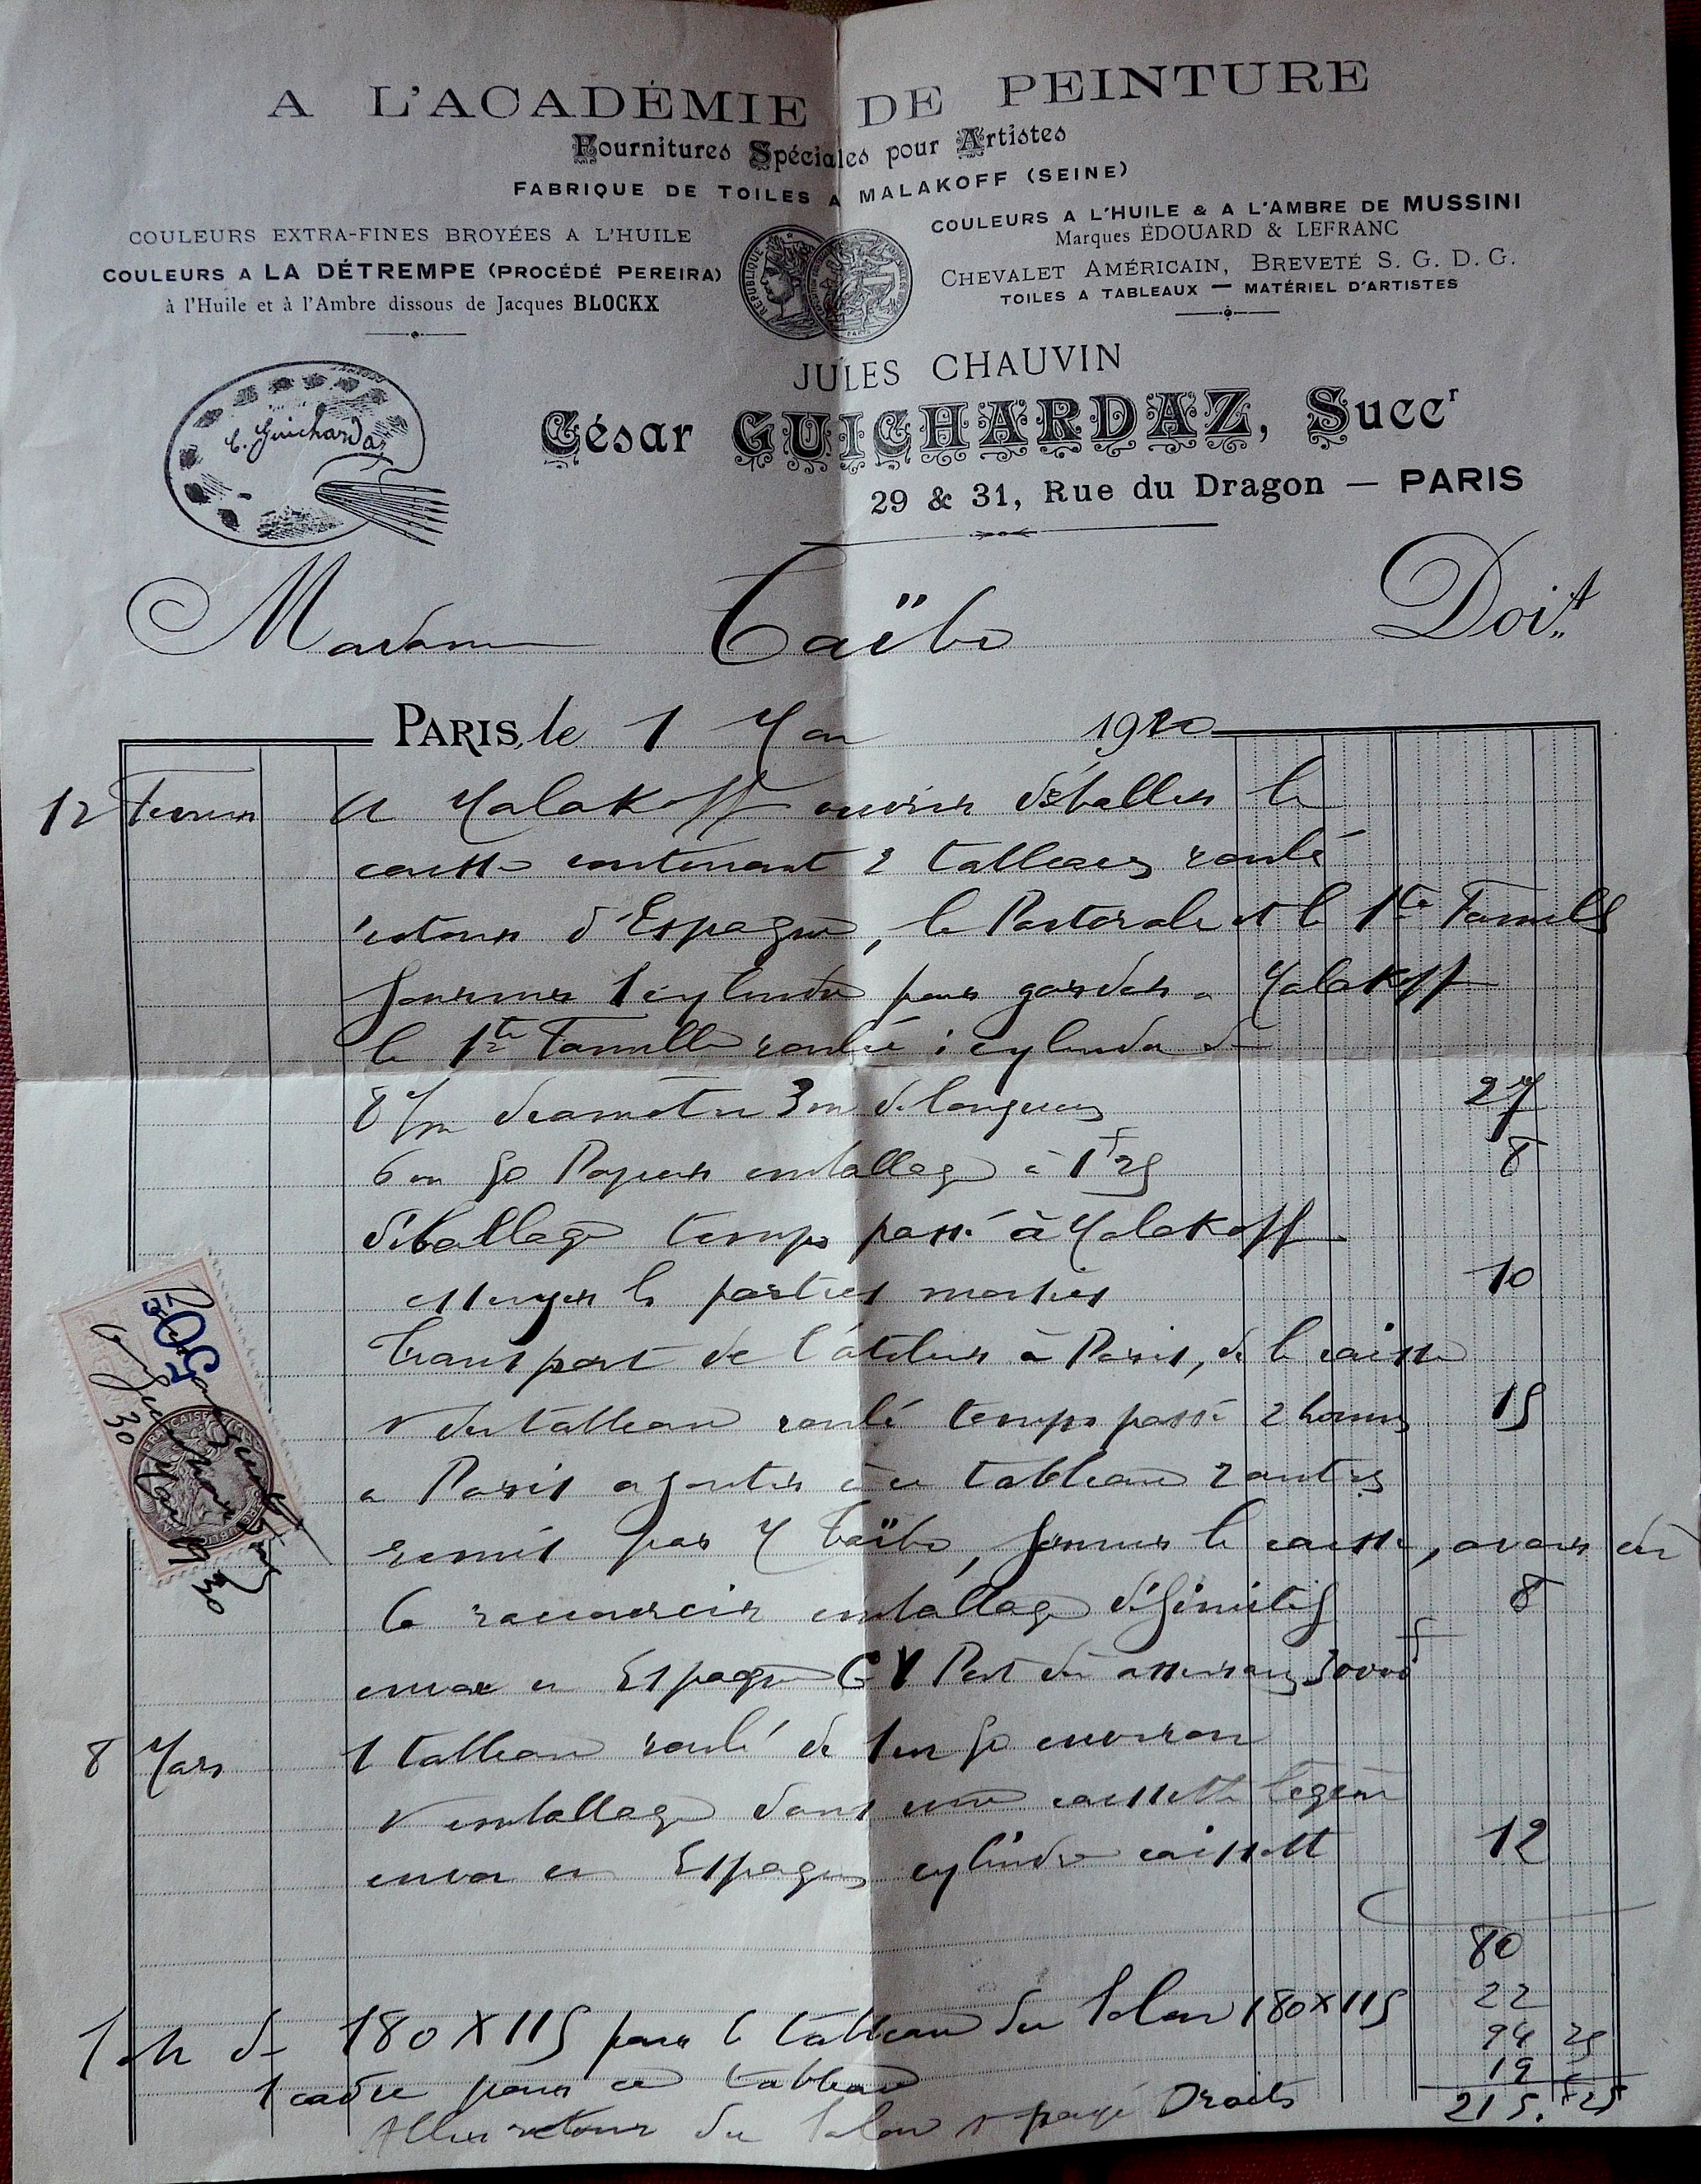 A L'ACADÉMIE DE PEINTURE
Fournitures Spéciales pour Artistes
FABRIQUE DE TOILES A MALAKOFF (SEINE)
COULEURS EXTRA-FINES BROYÉES A L'HUILE
COULEURS A LA DÉTREMPE (PROCÉDÉ PEREIRA)
à l'Huile et à l'Ambre dissous de Jacques BLOCKX
COULEURS A L'HUILE & A L'AMBRE DE MUSSINI
Marques ÉDOUARD & LEFRANC
CHEVALET AMÉRICAIN, BREVETÉ S. G. D. G.
TOILES A TABLEAUX — MATÉRIEL D'ARTISTES
RÉPUBLIQUE
C. Guichardaz
JULES CHAUVIN
César GUICHARDAZ, Succr
29 & 31, Rue du Dragon — PARIS
Madame Taïbo Doit
PARIS, le 1 Mai
12 Fevrier A Malakoff ouvrir déballer la
caisse contenant 2 tableaux roulé
retour d'Espagne, la Pastorale et la 1te Famille
fournir 1 cylindre pour garder a Malakoff
la 1te Famille roulée 1 cylindre de
diametre 3m de longueur 27
6m 50 Papier emballage à 1f 25 8
déballage temps passé à Malakoff
essuyer les parties 10
transport de l'atelier à Paris, de la caisse
et du tableau roulé temps passé 2 hommes 15
a Paris ajouter à ce tableau 2 autres
remis par M Taïbo, fermer la caisse, avoir du
la raccourcir emballage définitif 8
envoi en Espagne GV Port du assurance
8 Mars 1 tableau roulé de 1m 50 environ
et emballage dans une caissette légère
envoi en Espagne cylindre caissette 12
80
180 X 115 pour le tableau du Salon 180 X 115 22
1 cadre pour ce tableau 94 25
Aller retour du Salon et payé Droits 19
215. f25
50c